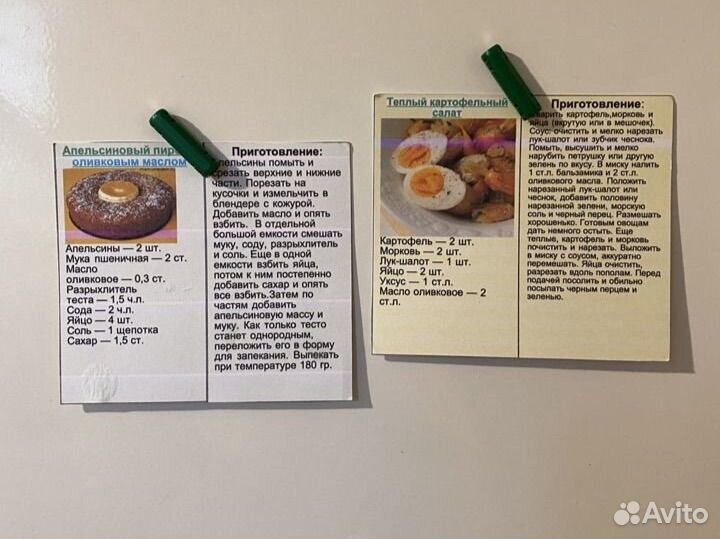 Апельсиновый пирог
оливковым маслом
Апельсины — 2 шт.
Мука пшеничная — 2 ст.
Масло
оливковое — 0,3 ст.
Разрыхлитель
теста — 1,5 ч.л.
Сода — 2 ч.л.
Яйцо — 4 шт.
Соль — 1 щепотка
Сахар — 1,5 ст.
Приготовление:
пельсины помыть и
срезать верхние и нижние
части. Порезать на
кусочки и измельчить в
блендере с кожурой.
Добавить масло и опять
взбить. В отдельной
большой емкости смешать
муку, соду, разрыхлитель
и соль. Еще в одной
емкости взбить яйца,
потом к ним постепенно
добавить сахар и опять
все взбить.Затем по
частям добавить
апельсиновую массу и
муку. Как только тесто
станет однородным,
переложить его в форму
для запекания. Выпекать
при температуре 180 гр.
Теплый картофельный
салат
Картофель — 2 шт.
Морковь — 2 шт.
Лук-шалот — 1 шт.
Яйцо — 2 шт.
Уксус — 1 ст.л.
Масло оливковое — 2
ст.л.
Приготовление:
варить картофель,морковь и
яйца (вкрутую или в мешочек).
Соус: очистить и мелко нарезать
лук-шалот или зубчик чеснока.
Помыть, высушить и мелко
нарубить петрушку или другую
зелень по вкусу. В миску налить
1 ст.л. бальзамика и 2 ст.л.
оливкового масла. Положить
нарезанный лук-шалот или
чеснок, добавить половину
нарезанной зелени, морскую
соль и черный перец. Размешать
хорошенько. Готовым овощам
дать немного остыть. Еще
теплые, картофель и морковь
почистить и нарезать. Выложить
в миску с соусом, аккуратно
перемешать. Яйца очистить,
разрезать вдоль пополам. Перед
подачей посолить и обильно
посыпать черным перцем и
зеленью.
Avito